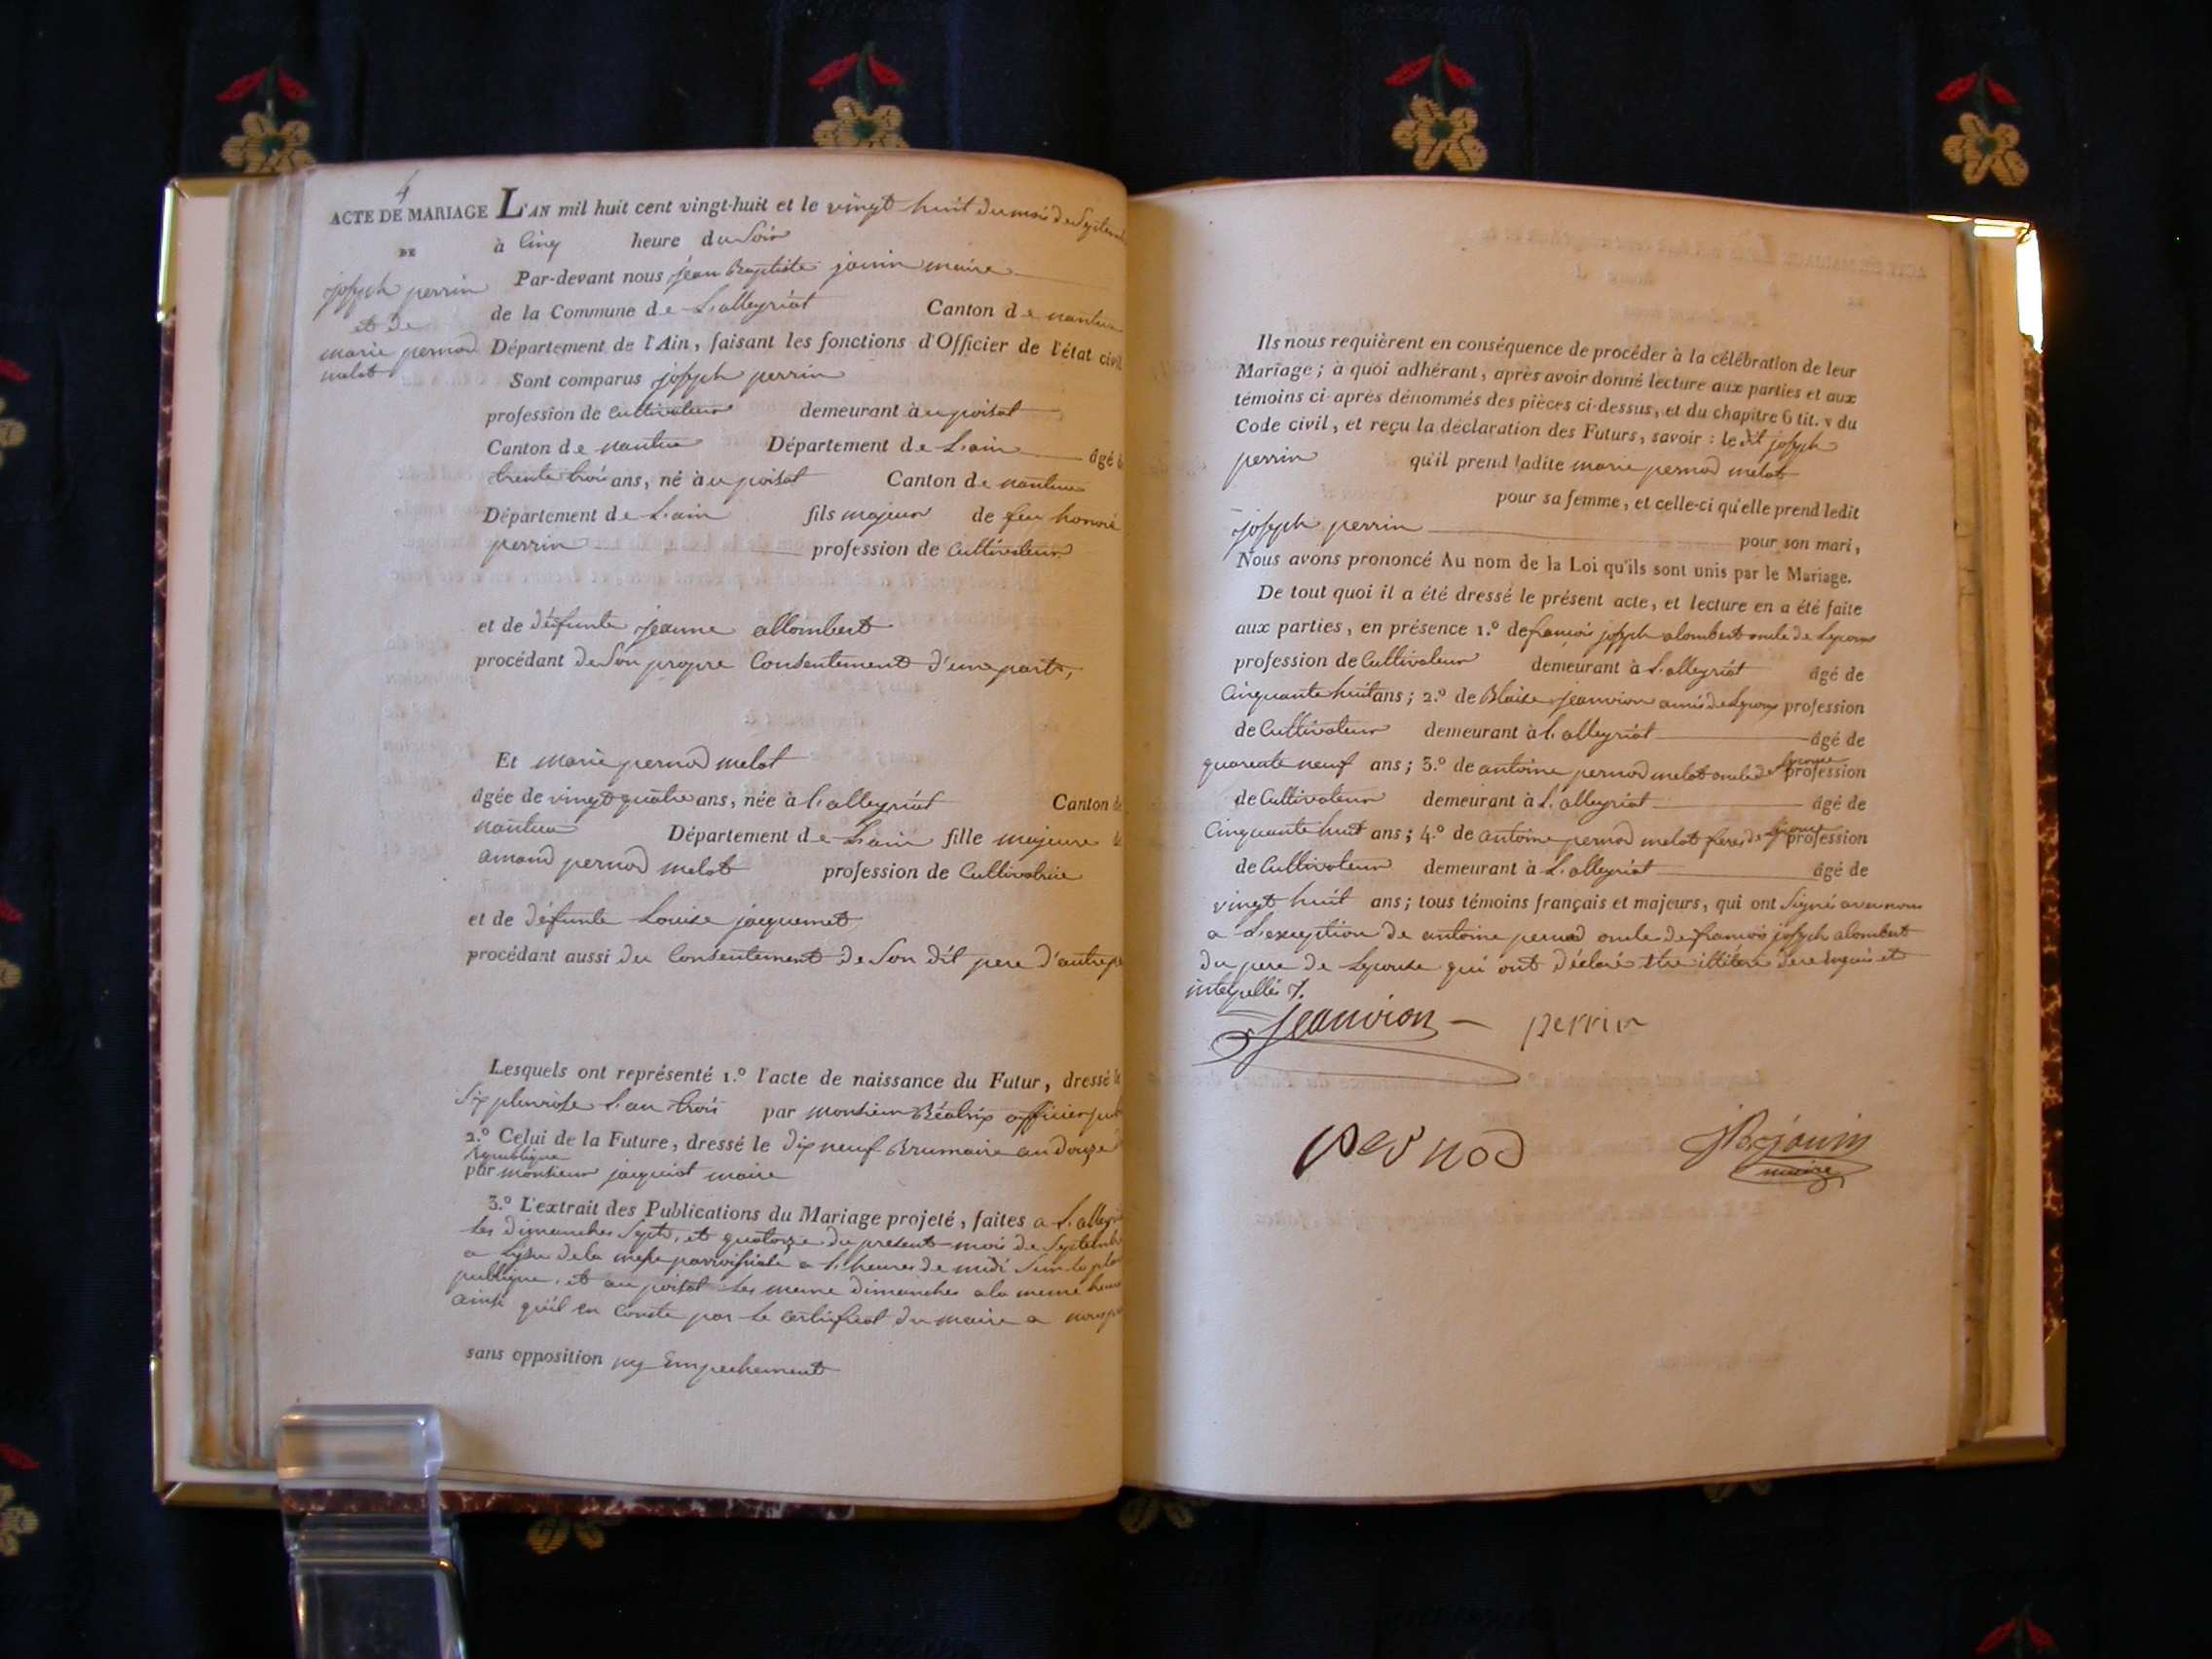 4
ACTE DE MARIAGE
DE
joseph perrin
et de
marie pernod
melot
L'AN mil huit cent vingt-huit et le vingt huit du mois de Septembre
à Cinq heure du Soir
Par-devant nous jean Baptiste janin maire
de la Commune de L'alleyriat Canton de nantua
Département de l'Ain, faisant les fonctions d'Officier de l'état civil
Sont comparus joseph perrin
profession de Cultivateur demeurant à u poisat
Canton de nantua Département de L'ain âgé d
trente trois ans, né à u poisat Canton de nantua
Département de L'ain fils majeur de feu honoré
perrin profession de Cultivateur
et de défunte jeanne allombert
procédant de Son propre Consentement d'une part,
Et marie pernod melot
âgée de vingt quatre ans, née à L'alleyriat Canton de
nantua Département de L'ain fille majeure d
amand pernod melot profession de Cultivatrice
et de défunte Louise jacquemet
procédant aussi du Consentement de Son dit pere d'autre p
Lesquels ont représenté 1.º l'acte de naissance du Futur, dressé le
Six pluviose L'an trois par monsieur Béatrix officier pub
2.º Celui de la Future, dressé le dix neuf Brumaire an douze
Republique
par monsieur jacquiot maire
3.º L'extrait des Publications du Mariage projeté, faites a L'alleyri
Les dimanches Sept, et quatorze du present mois de Septemb
a Lissue de la messe parroissiale a L'heure de midi Sur la pla
publique, et au poisat Les meme dimanches a la meme heure
ainsi qu'il en Conste par Le certificat du maire a nous p
sans opposition ny Empechement
Ils nous requièrent en conséquence de procéder à la célébration de leur
Mariage; à quoi adhérant, après avoir donné lecture aux parties et aux
témoins ci-après dénommés des pièces ci-dessus, et du chapitre 6 tit. v du
Code civil, et reçu la déclaration des Futurs, savoir : le dit joseph
perrin qu'il prend ladite marie pernod melot
pour sa femme, et celle-ci qu'elle prend ledit
joseph perrin pour son mari,
Nous avons prononcé Au nom de la Loi qu'ils sont unis par le Mariage.
De tout quoi il a été dressé le présent acte, et lecture en a été faite
aux parties, en présence 1.º de françois joseph alombert oncle de Lepoux
profession de Cultivateur demeurant à L'alleyriat âgé de
Cinquante huit ans; 2.º de Blaise jeanvion amis de Lepoux profession
de Cultivateur demeurant à L'alleyriat âgé de
quarente neuf ans; 3.º de antoine pernod melot oncle de Lepouse profession
de Cultivateur demeurant à L'alleyriat âgé de
Cinquante huit ans; 4.º de antoine pernod melot frere de Lepouse profession
de Cultivateur demeurant à L'alleyriat âgé de
vingt huit ans; tous témoins français et majeurs, qui ont Signés avec nous
a L'exception de antoine pernod oncle de françois joseph alombert
du pere de Lepouse qui ont déclaré etre illitéré de ce enquis et
interpellés
Jeanvion perrin
pernod JB janin
maire